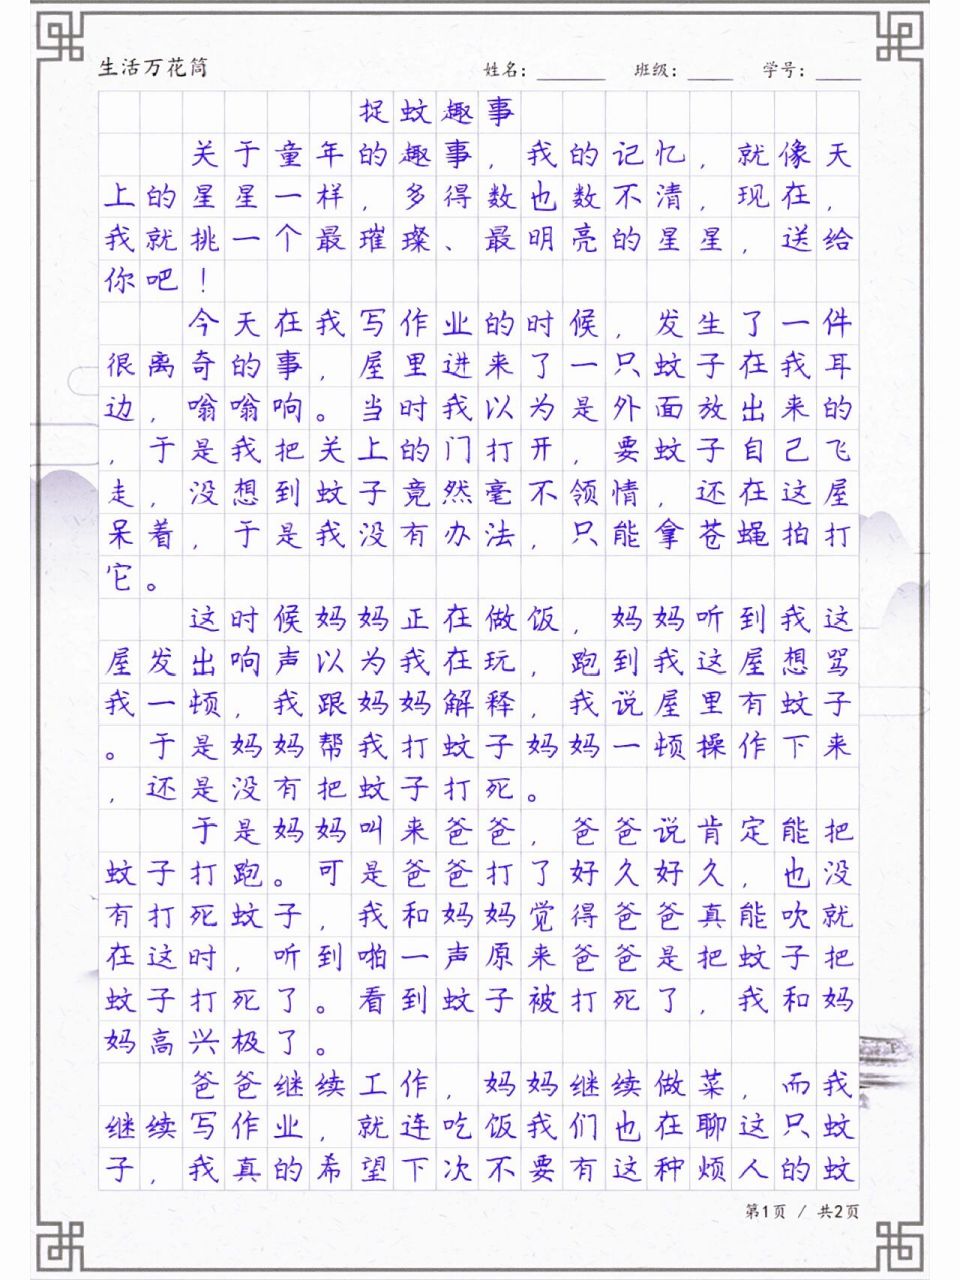 生活万花筒 姓名： 班级： 学号：
捉蚊趣事
关于童年的趣事，我的记忆，就像天
上的星星一样，多得数也数不清，现在，
我就挑一个最璀璨、最明亮的星星，送给
你吧！
今天在我写作业的时候，发生了一件
很离奇的事，屋里进来了一只蚊子在我耳
边，嗡嗡响。当时我以为是外面放出来的
，于是我把关上的门打开，要蚊子自己飞
走，没想到蚊子竟然毫不领情，还在这屋
呆着，于是我没有办法，只能拿苍蝇拍打
它。
这时候妈妈正在做饭，妈妈听到我这
屋发出响声以为我在玩，跑到我这屋想骂
我一顿，我跟妈妈解释，我说屋里有蚊子
。于是妈妈帮我打蚊子妈妈一顿操作下来
，还是没有把蚊子打死。
于是妈妈叫来爸爸，爸爸说肯定能把
蚊子打跑。可是爸爸打了好久好久，也没
有打死蚊子，我和妈妈觉得爸爸真能吹就
在这时，听到啪一声原来爸爸是把蚊子把
蚊子打死了。看到蚊子被打死了，我和妈
妈高兴极了。
爸爸继续工作，妈妈继续做菜，而我
继续写作业，就连吃饭我们也在聊这只蚊
子，我真的希望下次不要有这种烦人的蚊
第1页 / 共2页